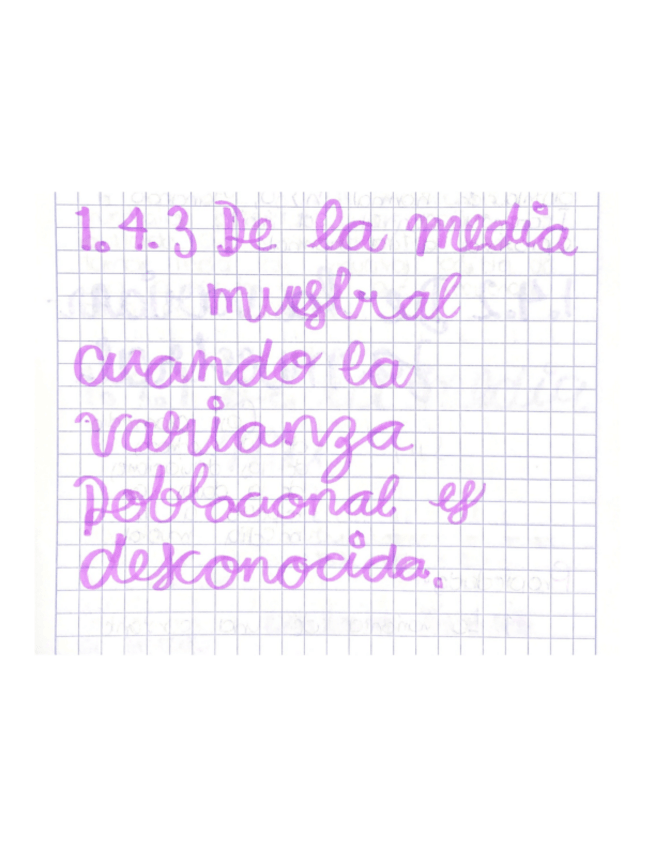 1.4.3 De la media
muestral
cuando la
varianza
Poblacional es
desconocida.